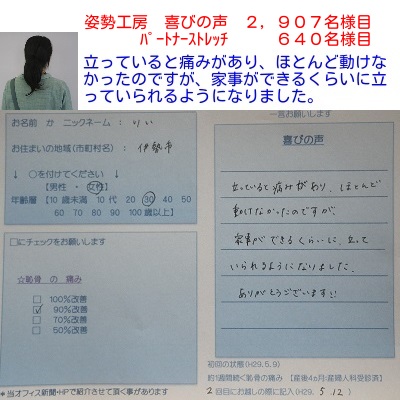 姿勢工房　喜びの声　２，９０７名様目
ﾊﾟｰﾄﾅｰｽﾄﾚｯﾁ　６４０名様目
立っていると痛みがあり、ほとんど動けな
かったのですが、家事ができるくらいに立
っていられるようになりました。
お名前 か ニックネーム：りい
お住まいの地域(市町村名)：伊勢市
↓ ○を付けてください ↓
【男性 ・ 女性】
年齢層 【10 歳未満 10 代 20 30 40 50
60 70 80 90 100 歳以上】
□にチェックをお願いします
☆恥骨 の 痛み
□ 100％改善
☑ 90％改善
□ 70％改善
□ 50％改善
＊当オフィス新聞・HPで紹介させて頂く事があります
一言お願いします
喜びの声
立っていると痛みがあり、ほとんど
動けなかったのですが、
家事ができるくらいに、立って
いられるようになりました。
ありがとうございます!!
初回の状態(H29.5.9)
約1週間続く恥骨の痛み 【産後4ヵ月:産婦人科受診済】
2回目にお越しの際に記入(H29. 5 . 12 )